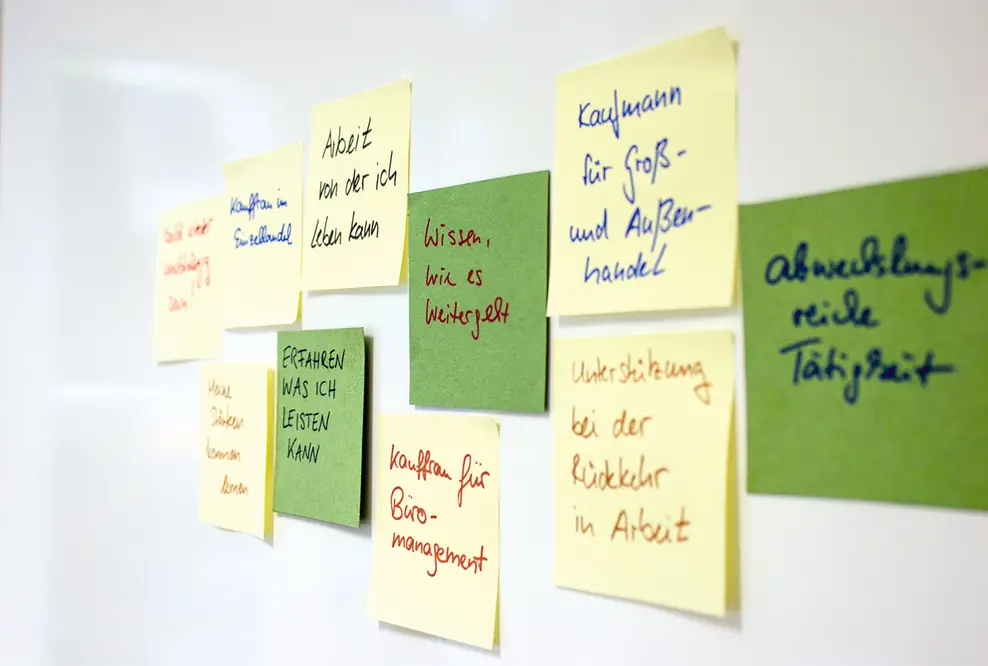 bald wieder
unabhängig
sein!
Kauffrau im
Einzelhandel
Arbeit
von der ich
Leben kann
Wissen,
wie es
weitergeht
Kaufmann
für Groß-
und Außen-
handel
abwechslungs-
reiche
Tätigkeit
Meine
Stärken
kennen
lernen
ERFAHREN
WAS ICH
LEISTEN
KANN
Kauffrau für
Büro-
management
Unterstützung
bei der
Rückkehr
in Arbeit